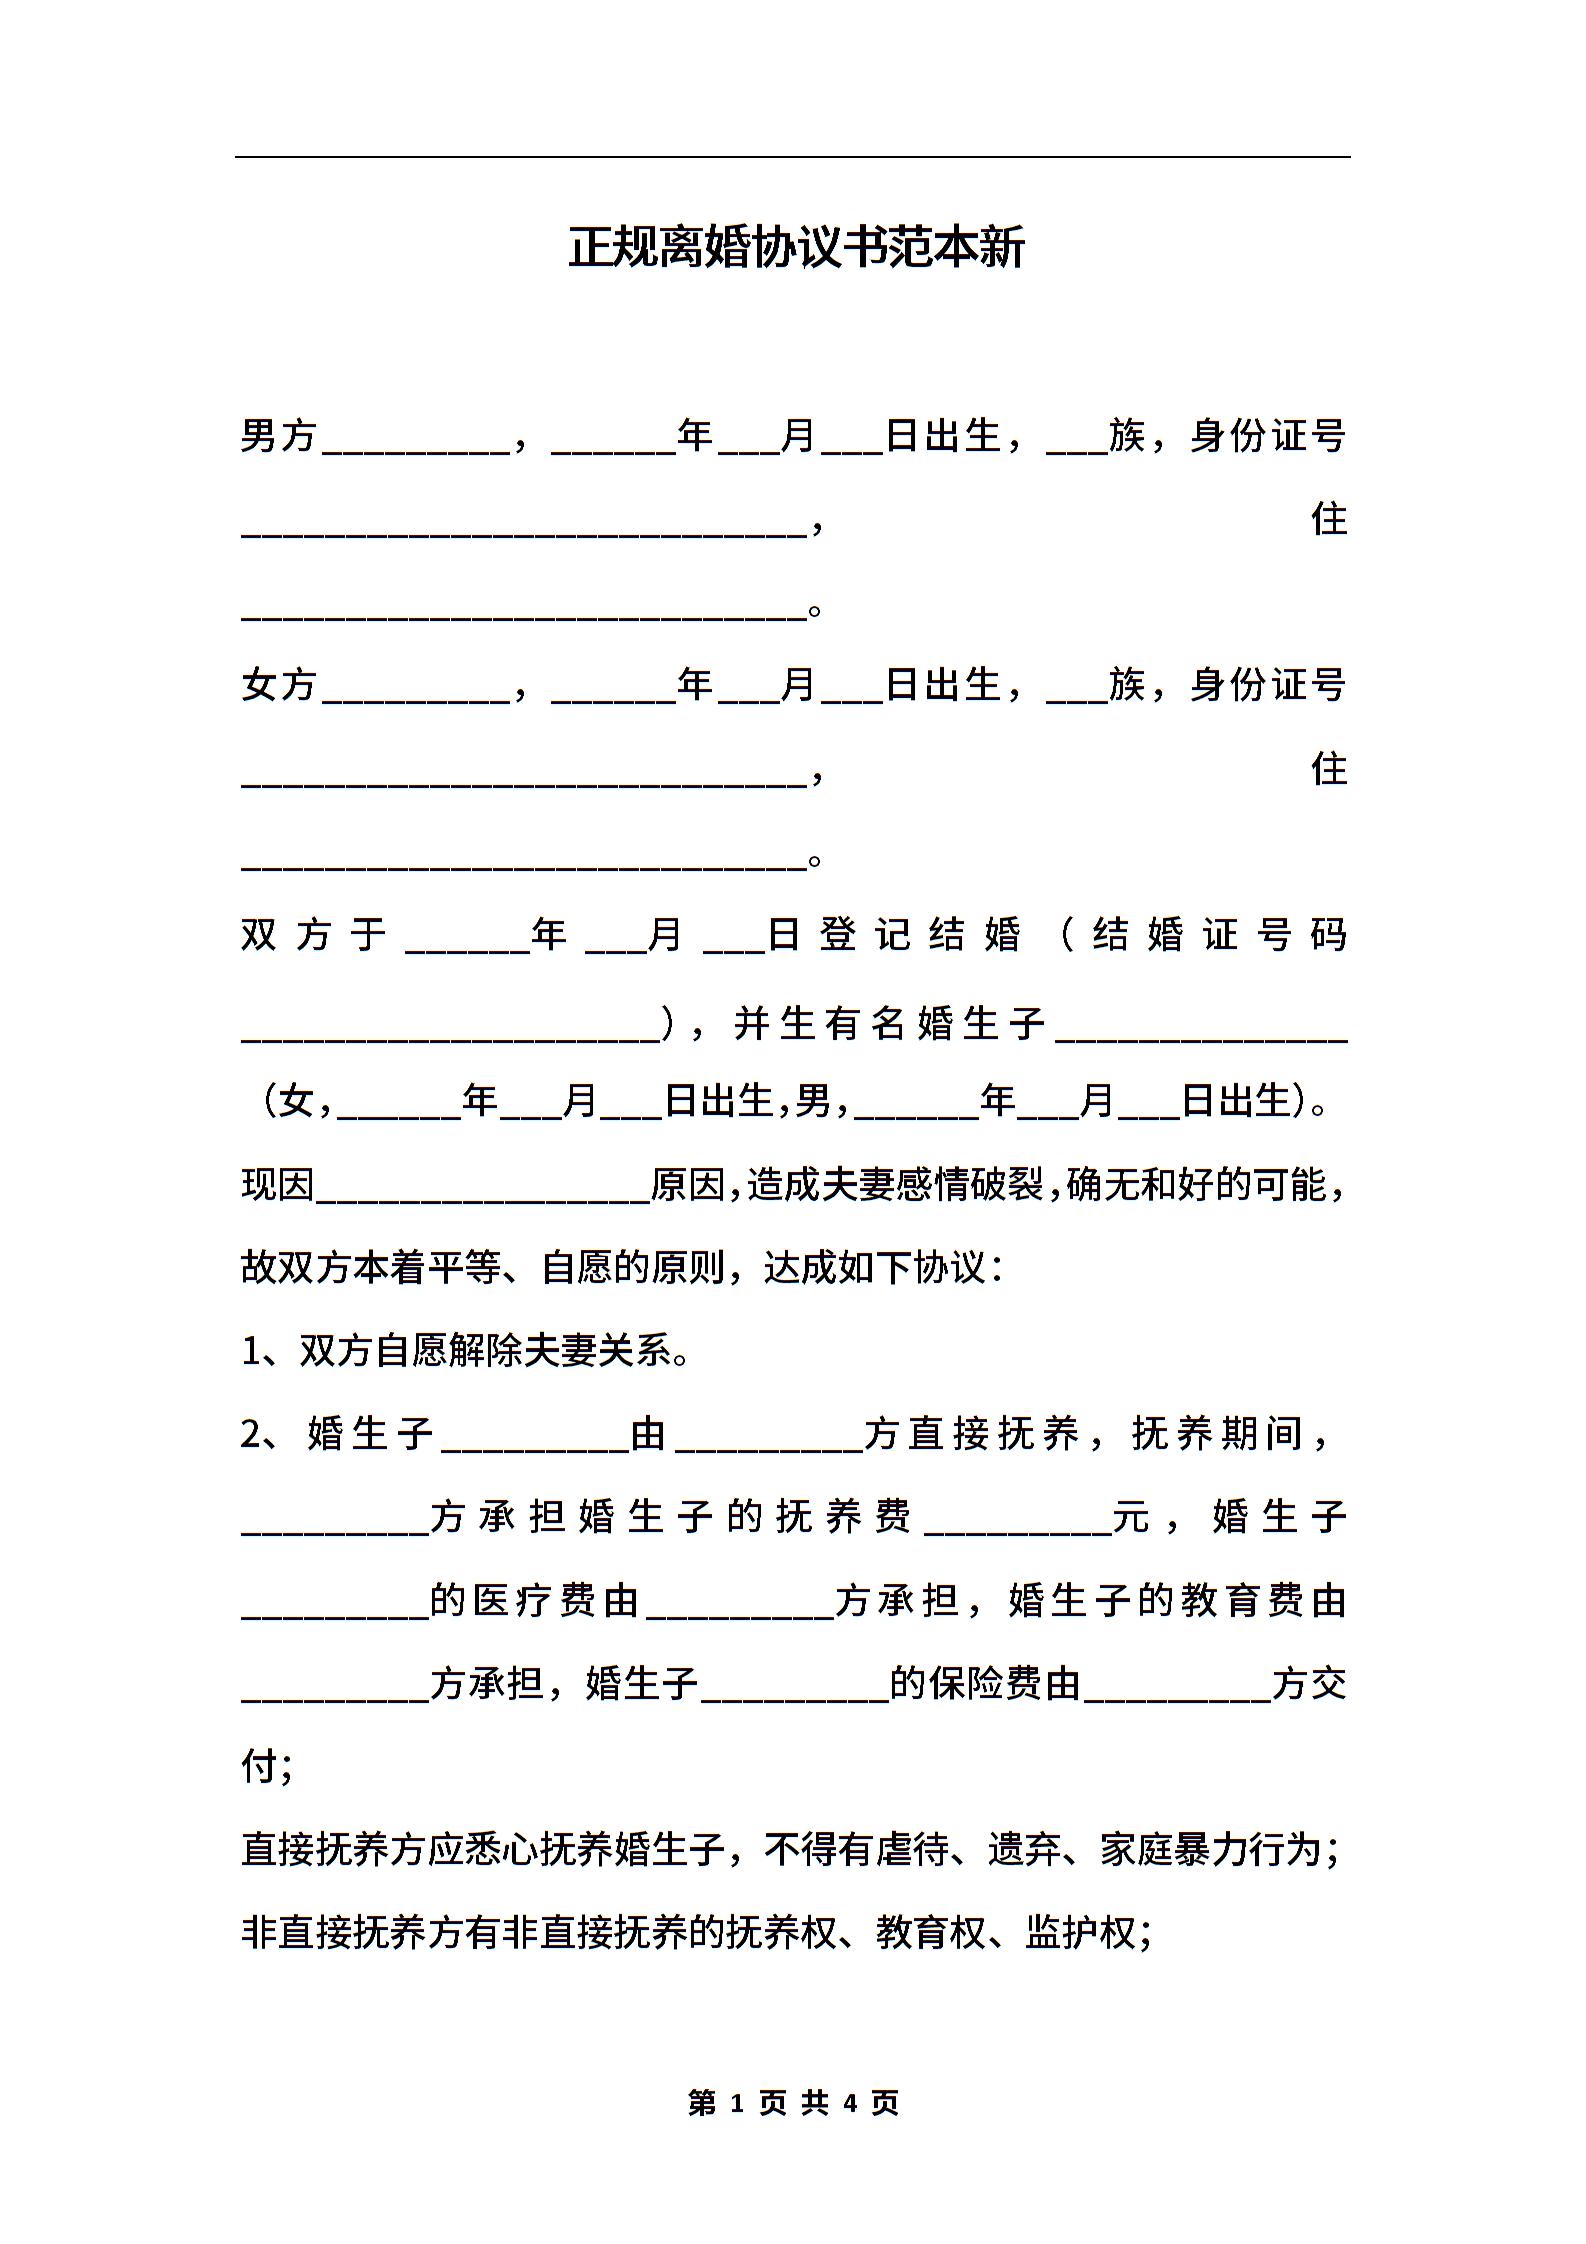 正规离婚协议书范本新
男方_________，______年___月___日出生，___族，身份证号
___________________________，住
___________________________。
女方_________，______年___月___日出生，___族，身份证号
___________________________，住
___________________________。
双方于______年___月___日登记结婚（结婚证号码
____________________），并生有名婚生子______________
（女，______年___月___日出生，男，______年___月___日出生）。
现因________________原因，造成夫妻感情破裂，确无和好的可能，
故双方本着平等、自愿的原则，达成如下协议：
1、双方自愿解除夫妻关系。
2、婚生子_________由_________方直接抚养，抚养期间，
_________方承担婚生子的抚养费_________元，婚生子
_________的医疗费由_________方承担，婚生子的教育费由
_________方承担，婚生子_________的保险费由_________方交
付；
直接抚养方应悉心抚养婚生子，不得有虐待、遗弃、家庭暴力行为；
非直接抚养方有非直接抚养的抚养权、教育权、监护权；
第 1 页 共 4 页